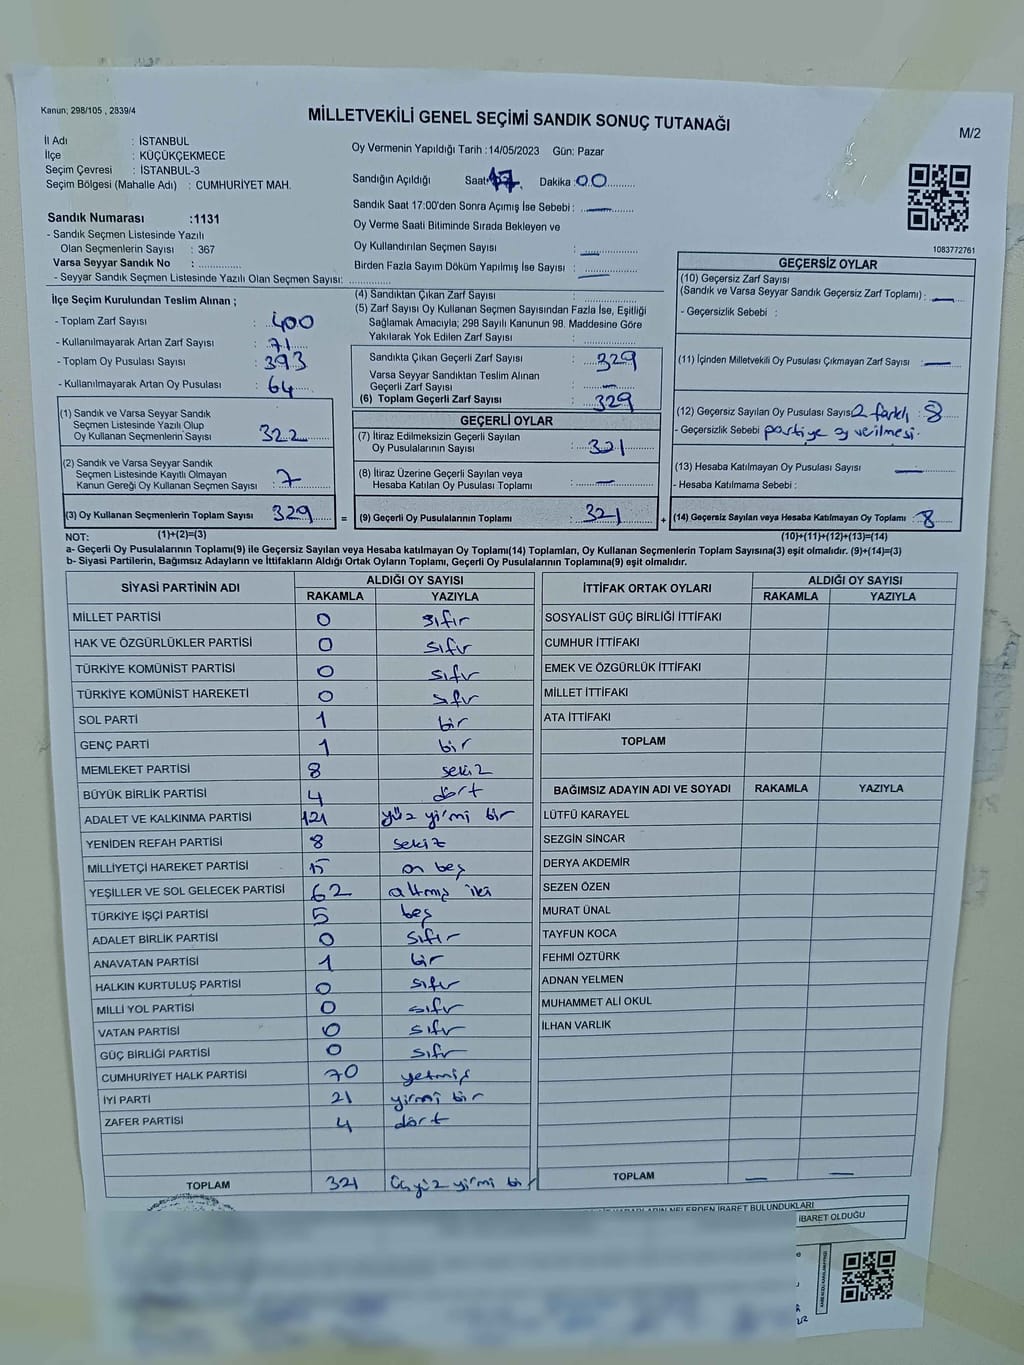 Kanun; 298/105 , 2839/4
MİLLETVEKİLİ GENEL SEÇİMİ SANDIK SONUÇ TUTANAĞI
M/2
İl Adı : İSTANBUL
İlçe : KÜÇÜKÇEKMECE
Seçim Çevresi : İSTANBUL-3
Seçim Bölgesi (Mahalle Adı) : CUMHURİYET MAH.
Sandık Numarası :1131
- Sandık Seçmen Listesinde Yazılı
Olan Seçmenlerin Sayısı : 367
Varsa Seyyar Sandık No :
- Seyyar Sandık Seçmen Listesinde Yazılı Olan Seçmen Sayısı:
Oy Vermenin Yapıldığı Tarih :14/05/2023 Gün: Pazar
Sandığın Açıldığı Saat: 17 Dakika : 00
Sandık Saat 17:00'den Sonra Açımış İse Sebebi : —
Oy Verme Saati Bitiminde Sırada Bekleyen ve
Oy Kullandırılan Seçmen Sayısı : —
Birden Fazla Sayım Döküm Yapılmış İse Sayısı : —
1083772761
İlçe Seçim Kurulundan Teslim Alınan ;
- Toplam Zarf Sayısı : 400
- Kullanılmayarak Artan Zarf Sayısı : 71
- Toplam Oy Pusulası Sayısı : 393
- Kullanılmayarak Artan Oy Pusulası : 64
(1) Sandık ve Varsa Seyyar Sandık
Seçmen Listesinde Yazılı Olup
Oy Kullanan Seçmenlerin Sayısı : 322
(2) Sandık ve Varsa Seyyar Sandık
Seçmen Listesinde Kayıtlı Olmayan
Kanun Gereği Oy Kullanan Seçmen Sayısı : 7
(3) Oy Kullanan Seçmenlerin Toplam Sayısı : 329
(4) Sandıktan Çıkan Zarf Sayısı :
(5) Zarf Sayısı Oy Kullanan Seçmen Sayısından Fazla İse, Eşitliği
Sağlamak Amacıyla; 298 Sayılı Kanunun 98. Maddesine Göre
Yakılarak Yok Edilen Zarf Sayısı :
Sandıkta Çıkan Geçerli Zarf Sayısı : 329
Varsa Seyyar Sandıktan Teslim Alınan
Geçerli Zarf Sayısı : —
(6) Toplam Geçerli Zarf Sayısı : 329
GEÇERLİ OYLAR
(7) İtiraz Edilmeksizin Geçerli Sayılan
Oy Pusulalarının Sayısı : 321
(8) İtiraz Üzerine Geçerli Sayılan veya
Hesaba Katılan Oy Pusulası Toplamı : —
= (9) Geçerli Oy Pusulalarının Toplamı : 321 +
GEÇERSİZ OYLAR
(10) Geçersiz Zarf Sayısı
(Sandık ve Varsa Seyyar Sandık Geçersiz Zarf Toplamı) : —
- Geçersizlik Sebebi :
(11) İçinden Milletvekili Oy Pusulası Çıkmayan Zarf Sayısı : —
(12) Geçersiz Sayılan Oy Pusulası Sayısı 2 farklı : 8
- Geçersizlik Sebebi partiye oy verilmesi.
(13) Hesaba Katılmayan Oy Pusulası Sayısı : —
- Hesaba Katılmama Sebebi :
(14) Geçersiz Sayılan veya Hesaba Katılmayan Oy Toplamı : 8
NOT: (1)+(2)=(3) (10)+(11)+(12)+(13)=(14)
a- Geçerli Oy Pusulalarının Toplamı(9) ile Geçersiz Sayılan veya Hesaba katılmayan Oy Toplamı(14) Toplamları, Oy Kullanan Seçmenlerin Toplam Sayısına(3) eşit olmalıdır. (9)+(14)=(3)
b- Siyasi Partilerin, Bağımsız Adayların ve İttifakların Aldığı Ortak Oyların Toplamı, Geçerli Oy Pusulalarının Toplamına(9) eşit olmalıdır.
SİYASİ PARTİNİN ADI ALDIĞI OY SAYISI
RAKAMLA YAZIYLA
MİLLET PARTİSİ 0 sıfır
HAK VE ÖZGÜRLÜKLER PARTİSİ 0 sıfır
TÜRKİYE KOMÜNİST PARTİSİ 0 sıfır
TÜRKİYE KOMÜNİST HAREKETİ 0 sıfır
SOL PARTİ 1 bir
GENÇ PARTİ 1 bir
MEMLEKET PARTİSİ 8 sekiz
BÜYÜK BİRLİK PARTİSİ 4 dört
ADALET VE KALKINMA PARTİSİ 121 yüz yirmi bir
YENİDEN REFAH PARTİSİ 8 sekiz
MİLLİYETÇİ HAREKET PARTİSİ 15 on beş
YEŞİLLER VE SOL GELECEK PARTİSİ 62 altmış iki
TÜRKİYE İŞÇİ PARTİSİ 5 beş
ADALET BİRLİK PARTİSİ 0 sıfır
ANAVATAN PARTİSİ 1 bir
HALKIN KURTULUŞ PARTİSİ 0 sıfır
MİLLİ YOL PARTİSİ 0 sıfır
VATAN PARTİSİ 0 sıfır
GÜÇ BİRLİĞİ PARTİSİ 0 sıfır
CUMHURİYET HALK PARTİSİ 70 yetmiş
İYİ PARTİ 21 yirmi bir
ZAFER PARTİSİ 4 dört
TOPLAM 321 Üçyüz yirmi bir
İTTİFAK ORTAK OYLARI ALDIĞI OY SAYISI
RAKAMLA YAZIYLA
SOSYALİST GÜÇ BİRLİĞİ İTTİFAKI
CUMHUR İTTİFAKI
EMEK VE ÖZGÜRLÜK İTTİFAKI
MİLLET İTTİFAKI
ATA İTTİFAKI
TOPLAM
BAĞIMSIZ ADAYIN ADI VE SOYADI RAKAMLA YAZIYLA
LÜTFÜ KARAYEL
SEZGİN SİNCAR
DERYA AKDEMİR
SEZEN ÖZEN
MURAT ÜNAL
TAYFUN KOCA
FEHMİ ÖZTÜRK
ADNAN YELMEN
MUHAMMET ALİ OKUL
İLHAN VARLIK
TOPLAM — —
NELERDEN İBARET BULUNDUKLARI
İBARET OLDUĞU